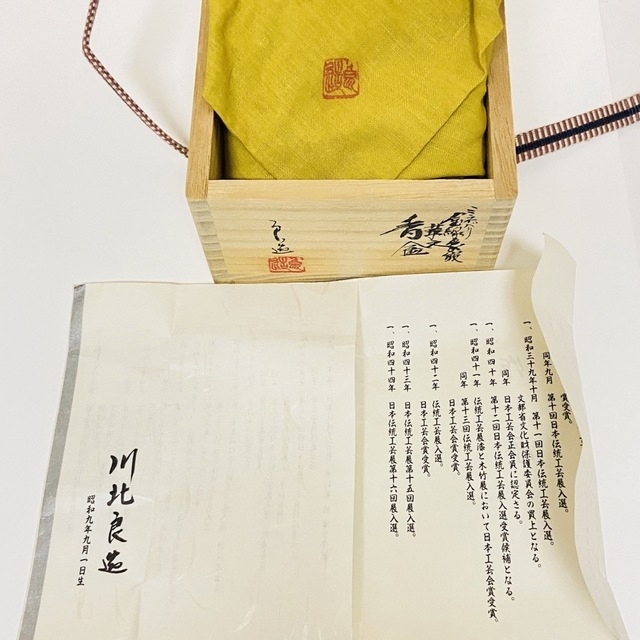 香合
良造
賞受賞。
同年九月 第十回日本伝統工芸展入選。
一、昭和三十九年十月 第十一回日本伝統工芸展入選。
文部省文化財保護委員会の買上となる。
同年 日本工芸会正会員に認定さる。
一、昭和四十年 第十二回日本伝統工芸展入選受賞候補となる。
一、昭和四十一年 伝統工芸展漆と木竹展において日本工芸会賞受賞。
同年 第十三回伝統工芸展入選。
日本工芸会賞受賞。
一、昭和四十二年 伝統工芸展入選。
日本工芸会賞受賞。
一、昭和四十三年 日本伝統工芸展第十五回展入選。
一、昭和四十四年 日本伝統工芸展第十六回展入選。
川北良造
昭和九年九月一日生